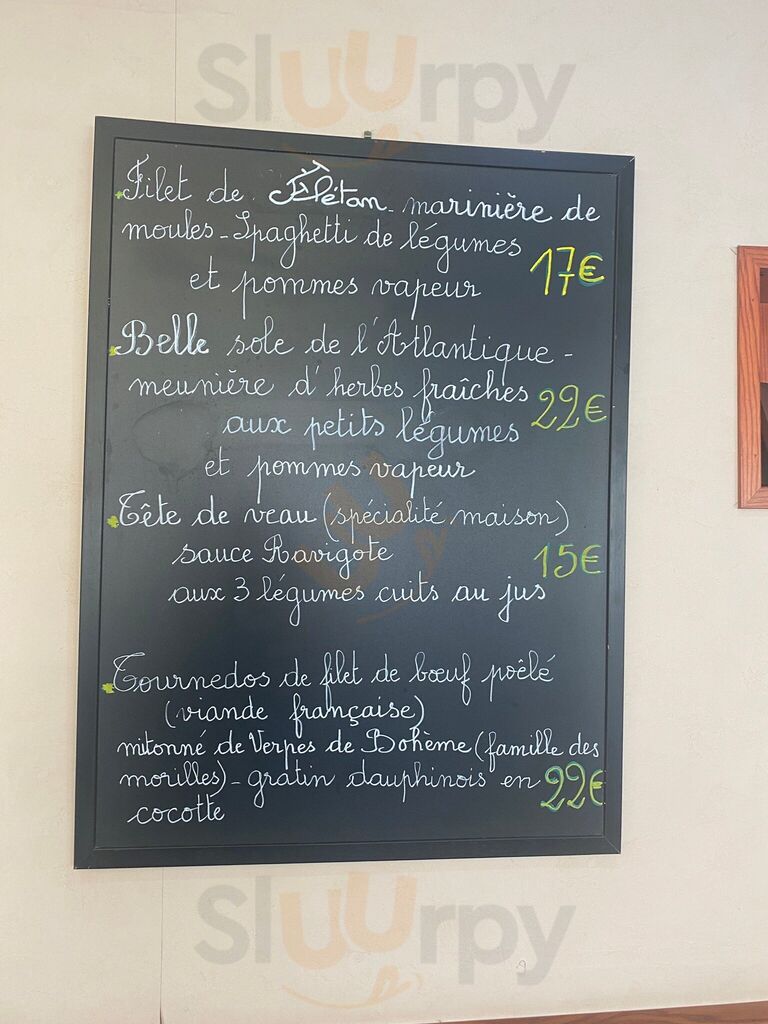 SlUUrpy
Filet de Flétan - marinière de
moules - Spaghetti de légumes
et pommes vapeur
17€
Belle sole de l'Atlantique -
meunière d'herbes fraîches
22€
aux petits légumes
et pommes vapeur
Tête de veau (spécialité maison)
sauce Ravigote
15€
aux 3 légumes cuits au jus
Tournedos de filet de bœuf poêlé
(viande française)
mitonné de Verpes de Bohème (famille des
morilles) - gratin dauphinois en
22€
cocotte
SlUUrpy